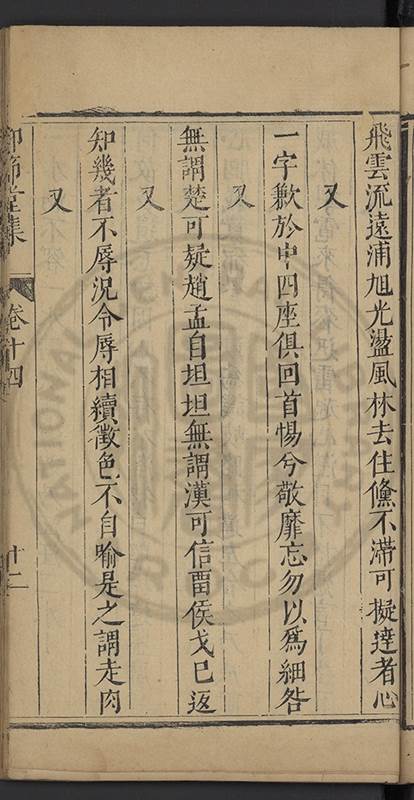 飛雲流遠浦旭光盪風林去住儻不滯可擬達者心
又
一字歉於中四座俱回首惕兮敬靡忘勿以爲細咎
又
無謂楚可疑趙孟自坦坦無謂漢可信畱侯戈已返
又
知幾者不辱況令辱相續徵色不自喻是之謂走肉
又
節堂集
卷十四
十二